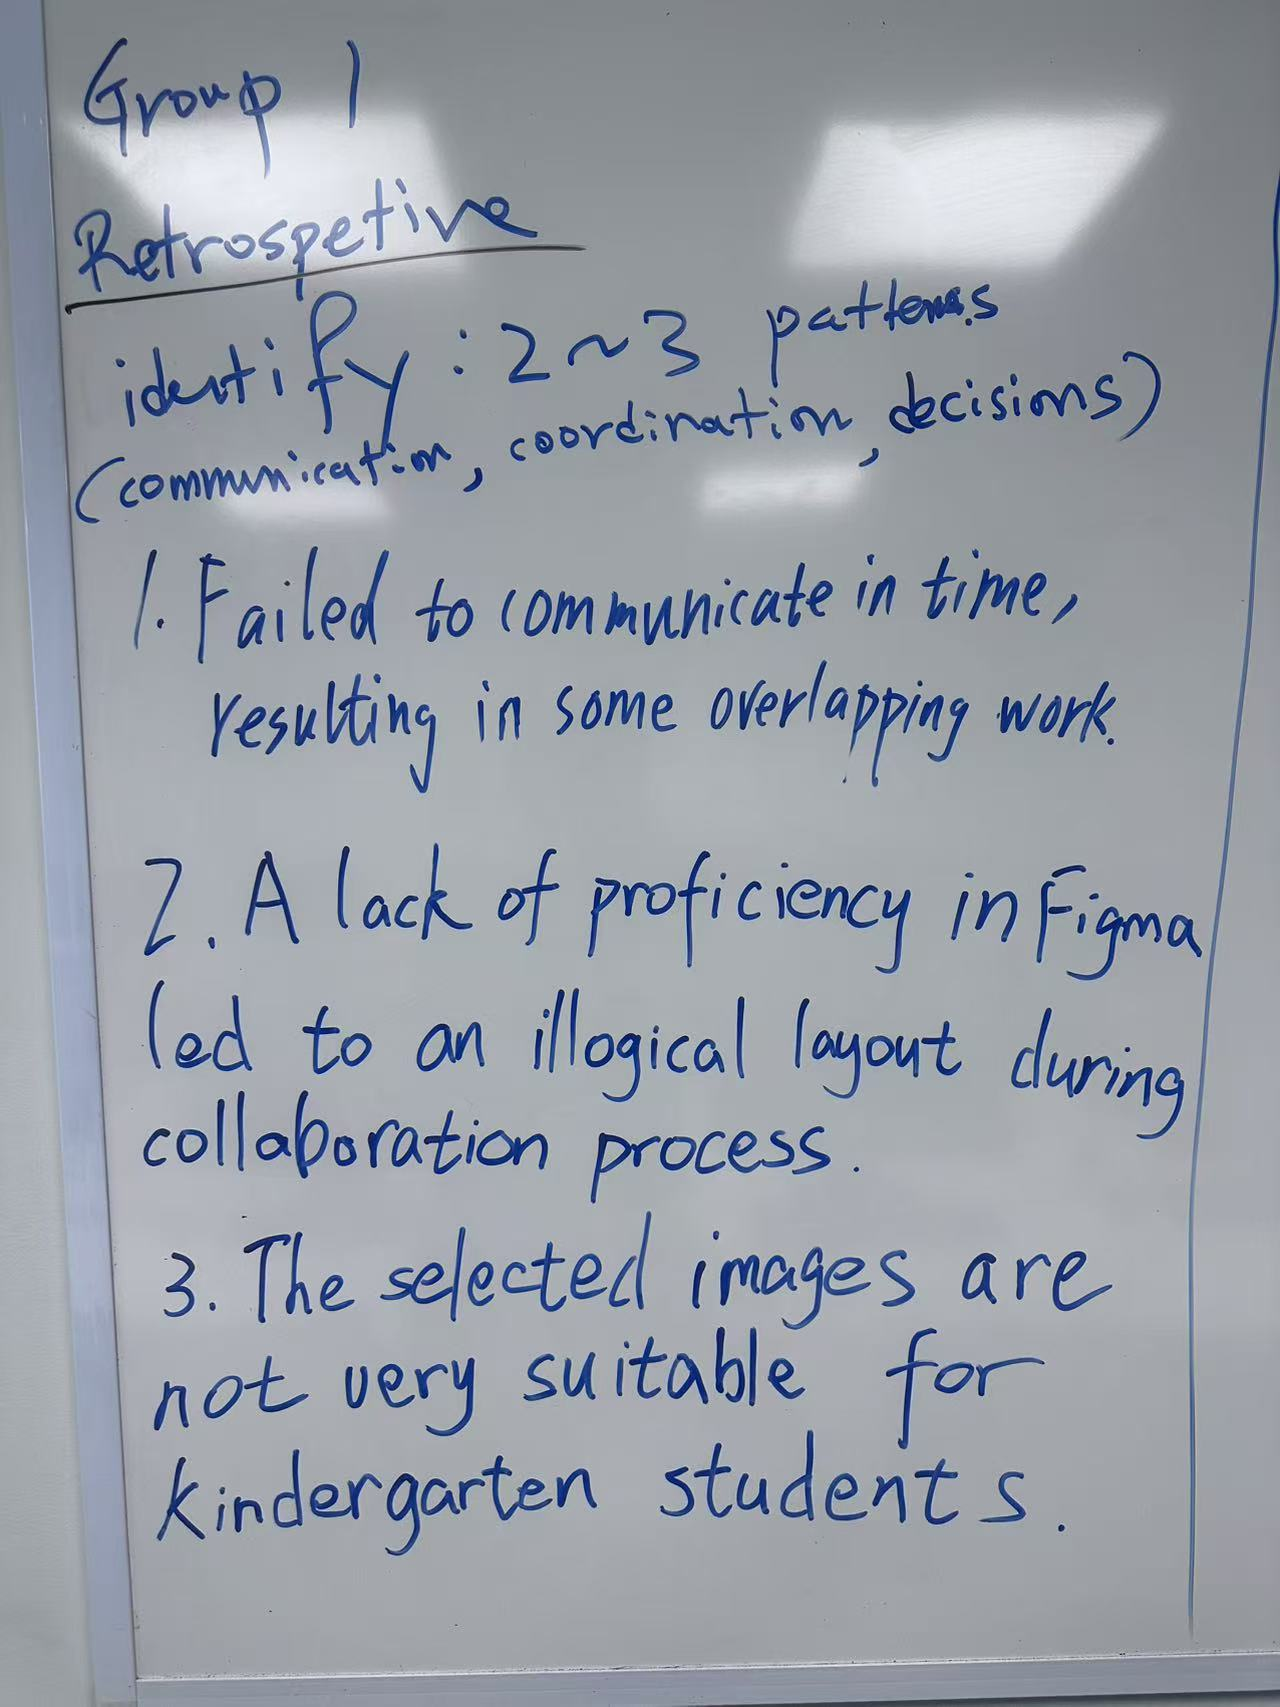 Group 1
Retrospetive
identify : 2~3 patterns
(communication, coordination, decisions)
1. Failed to communicate in time,
resulting in some overlapping work.
2. A lack of proficiency in Figma
led to an illogical layout during
collaboration process.
3. The selected images are
not very suitable for
kindergarten students.